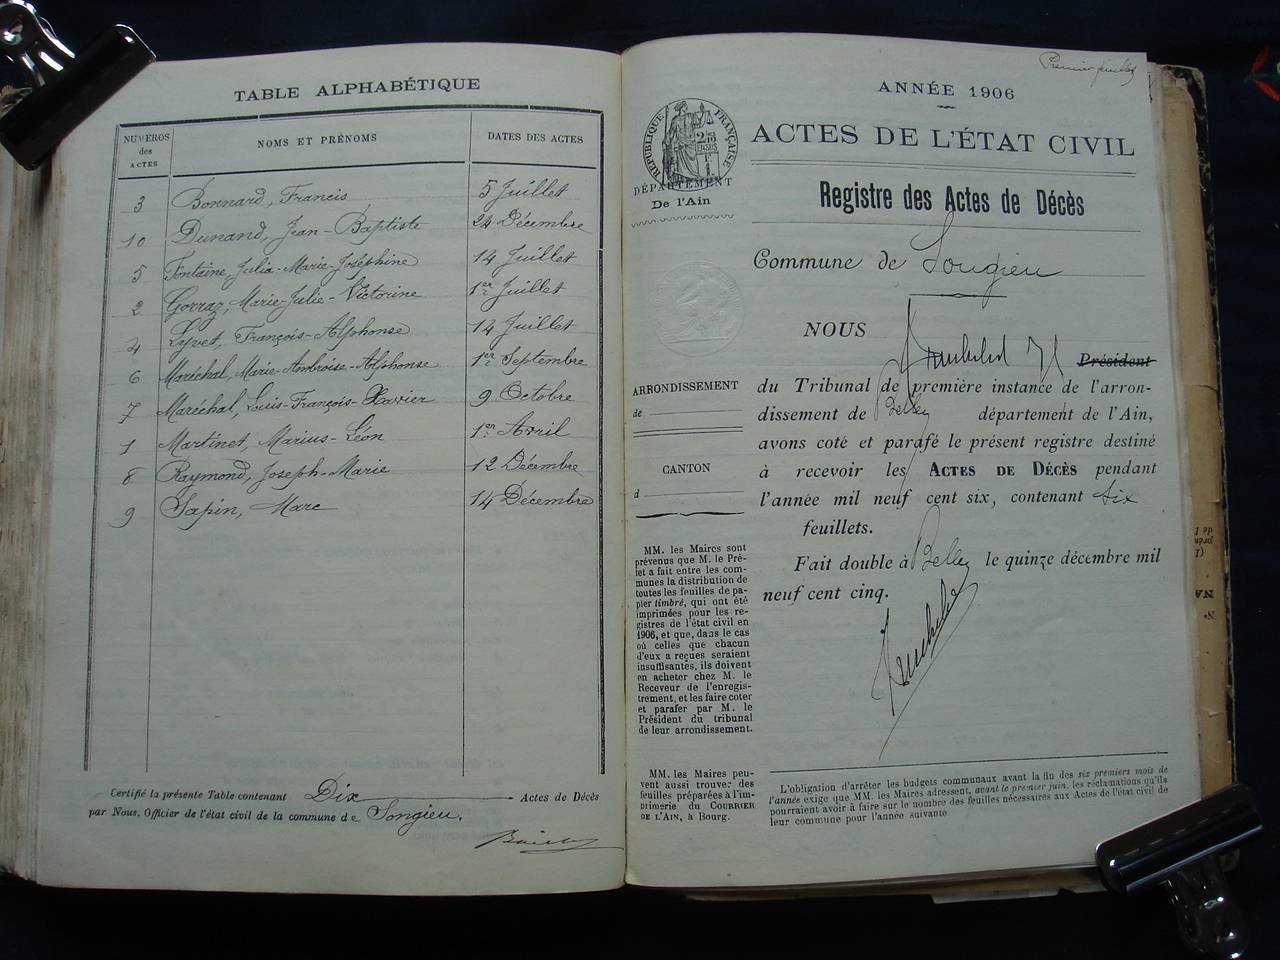 TABLE ALPHABÉTIQUE
NUMÉROS des ACTES
NOMS ET PRÉNOMS
DATES DES ACTES
3 Bonnard, Francis 5 Juillet
10 Dunand, Jean-Baptiste 24 Décembre
5 Fontaine, Julia-Marie-Joséphine 14 Juillet
2 Gorraz, Marie-Julie-Victorine 1er Juillet
4 Lyvet, François-Alphonse 14 Juillet
6 Maréchal, Marie-Ambroise-Alphonse 1er Septembre
7 Maréchal, Louis-François-Xavier 9 Octobre
1 Martinet, Marius-Léon 1er Avril
8 Raymond, Joseph-Marie 12 Décembre
9 Sapin, Marc 14 Décembre
Certifié la présente Table contenant Dix Actes de Décès
par Nous, Officier de l'état civil de la commune de Songieu.
Premier feuillet
ANNÉE 1906
ACTES DE L'ÉTAT CIVIL
RÉPUBLIQUE FRANÇAISE
DÉPARTEMENT
De l'Ain
Registre des Actes de Décès
Commune de Songieu
NOUS
Président
du Tribunal de première instance de l'arron-
dissement de Belley département de l'Ain,
avons coté et parafé le présent registre destiné
à recevoir les ACTES DE DÉCÈS pendant
l'année mil neuf cent six, contenant six
feuillets.
Fait double à Belley le quinze décembre mil
neuf cent cinq.
ARRONDISSEMENT
de
CANTON
d
MM. les Maires sont
prévenus que M. le Pré-
fet a fait entre les com-
munes la distribution de
toutes les feuilles de pa-
pier timbré, qui ont été
imprimées pour les re-
gistres de l'état civil en
1906, et que, dans le cas
où celles que chacun
d'eux a reçues seraient
insuffisantes, ils doivent
en acheter chez M. le
Receveur de l'enregis-
trement, et les faire coter
et parafer par M. le
Président du tribunal
de leur arrondissement.
MM. les Maires peu-
vent aussi trouver des
feuilles préparées à l'im-
primerie du COURRIER
DE L'AIN, à Bourg.
L'obligation d'arrêter les budgets communaux avant la fin des six premiers mois de
l'année exige que MM. les Maires adressent, avant le premier juin, les réclamations qu'ils
pourraient avoir à faire sur le nombre des feuilles nécessaires aux Actes de l'état civil de
leur commune pour l'année suivante.